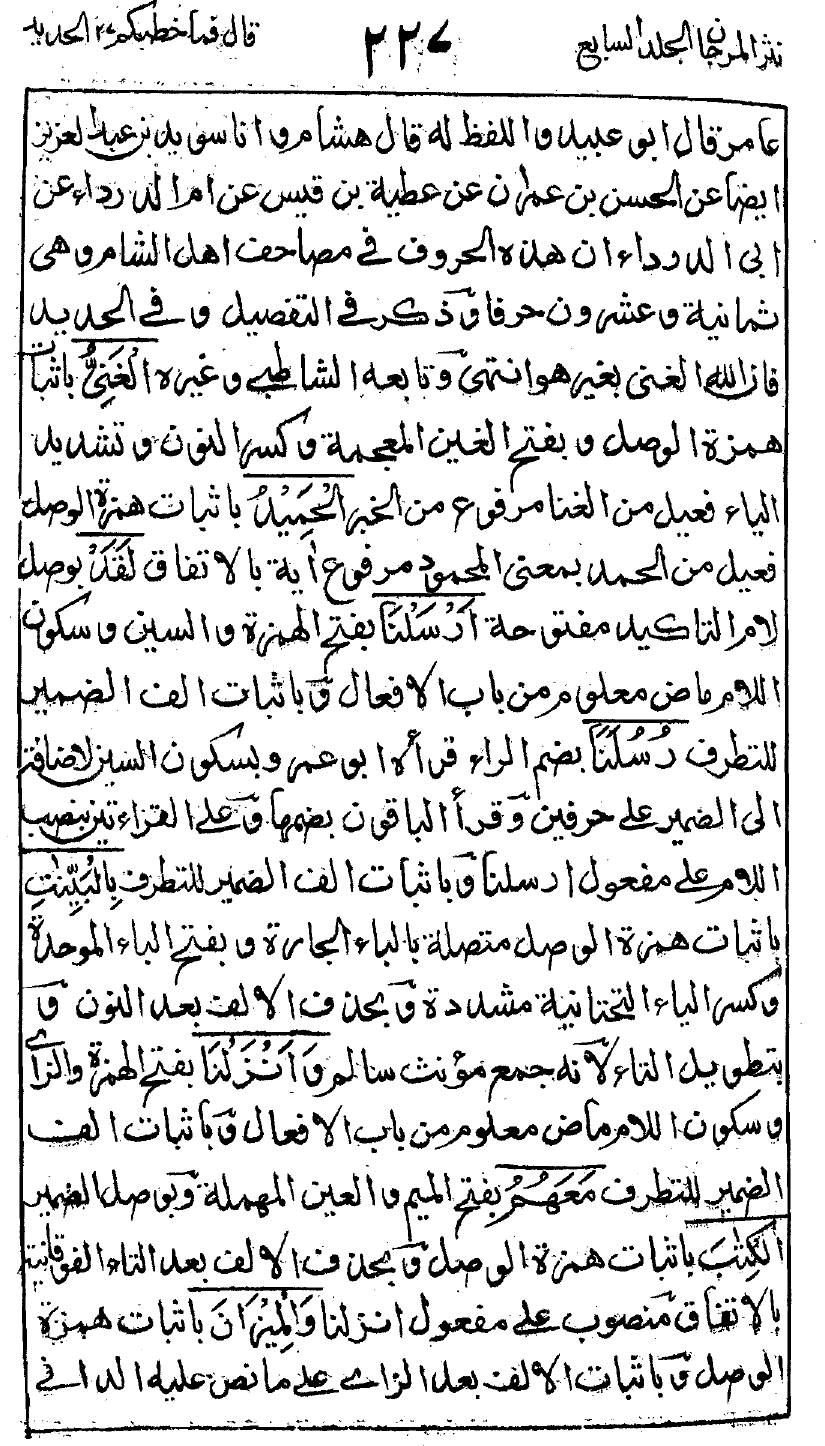 نثر المرجان الجلد السابع
٢٢٧
قال فما خطبكم ٢٧ الحديد
عامر قال ابو عبيد واللفظ له قال هشام وانا سويد بن عبد العزيز
ايضا عن الحسن بن عمران عن عطية بن قيس عن ام الدرداء عن
ابى الدرداء ان هذه الحروف في مصاحف اهل الشام وهى
ثمانية وعشرون حرفا وذكر في التفصيل وفي الحديد
فان الله الغنى بغير هو انتهى وتابعه الشاطبي وغيره الْغَنِىُّ باثبات
همزة الوصل وبفتح الغين المعجمة وكسر النون وتشديد
الياء فعيل من الغنا مرفوع من الخبر الْحَمِيْدُ باثبات همزة الوصل
فعيل من الحمد بمعنى المحمود مرفوع اٰية بالاتفاق لَقَدْ بوصل
لام التاكيد مفتوحة اَرْسَلْنَا بفتح الهمزة والسين وسكون
اللام ماض معلوم من باب الافعال وباثبات الف الضمير
للتطرف رُسُلَنَا بضم الراء قرأه ابو عمرو بسكون السين لاضافته
الى الضمير على حرفين وقرأ الباقون بضمها وعلى القراءتين بنصب
اللام على مفعول ارسلنا وباثبات الف الضمير للتطرف بِالْبَيِّنٰتِ
باثبات همزة الوصل متصلة بالباء الجارة وبفتح الباء الموحدة
وكسر الياء التحتانية مشددة وبحذف الالف بعد النون و
بتطويل التاء لانه جمع مؤنث سالم وَاَنْزَلْنَا بفتح الهمزة والزاي
وسكون اللام ماض معلوم من باب الافعال وباثبات الف
الضمير للتطرف مَعَهُمُ بفتح الميم والعين المهملة وبوصل الضمير
الْكِتٰبَ باثبات همزة الوصل وبحذف الالف بعد التاء الفوقانية
بالاتفاق منصوب على مفعول انزلنا وَالْمِيْزَانَ باثبات همزة
الوصل وباثبات الالف بعد الزاي على ما نص عليه الداني